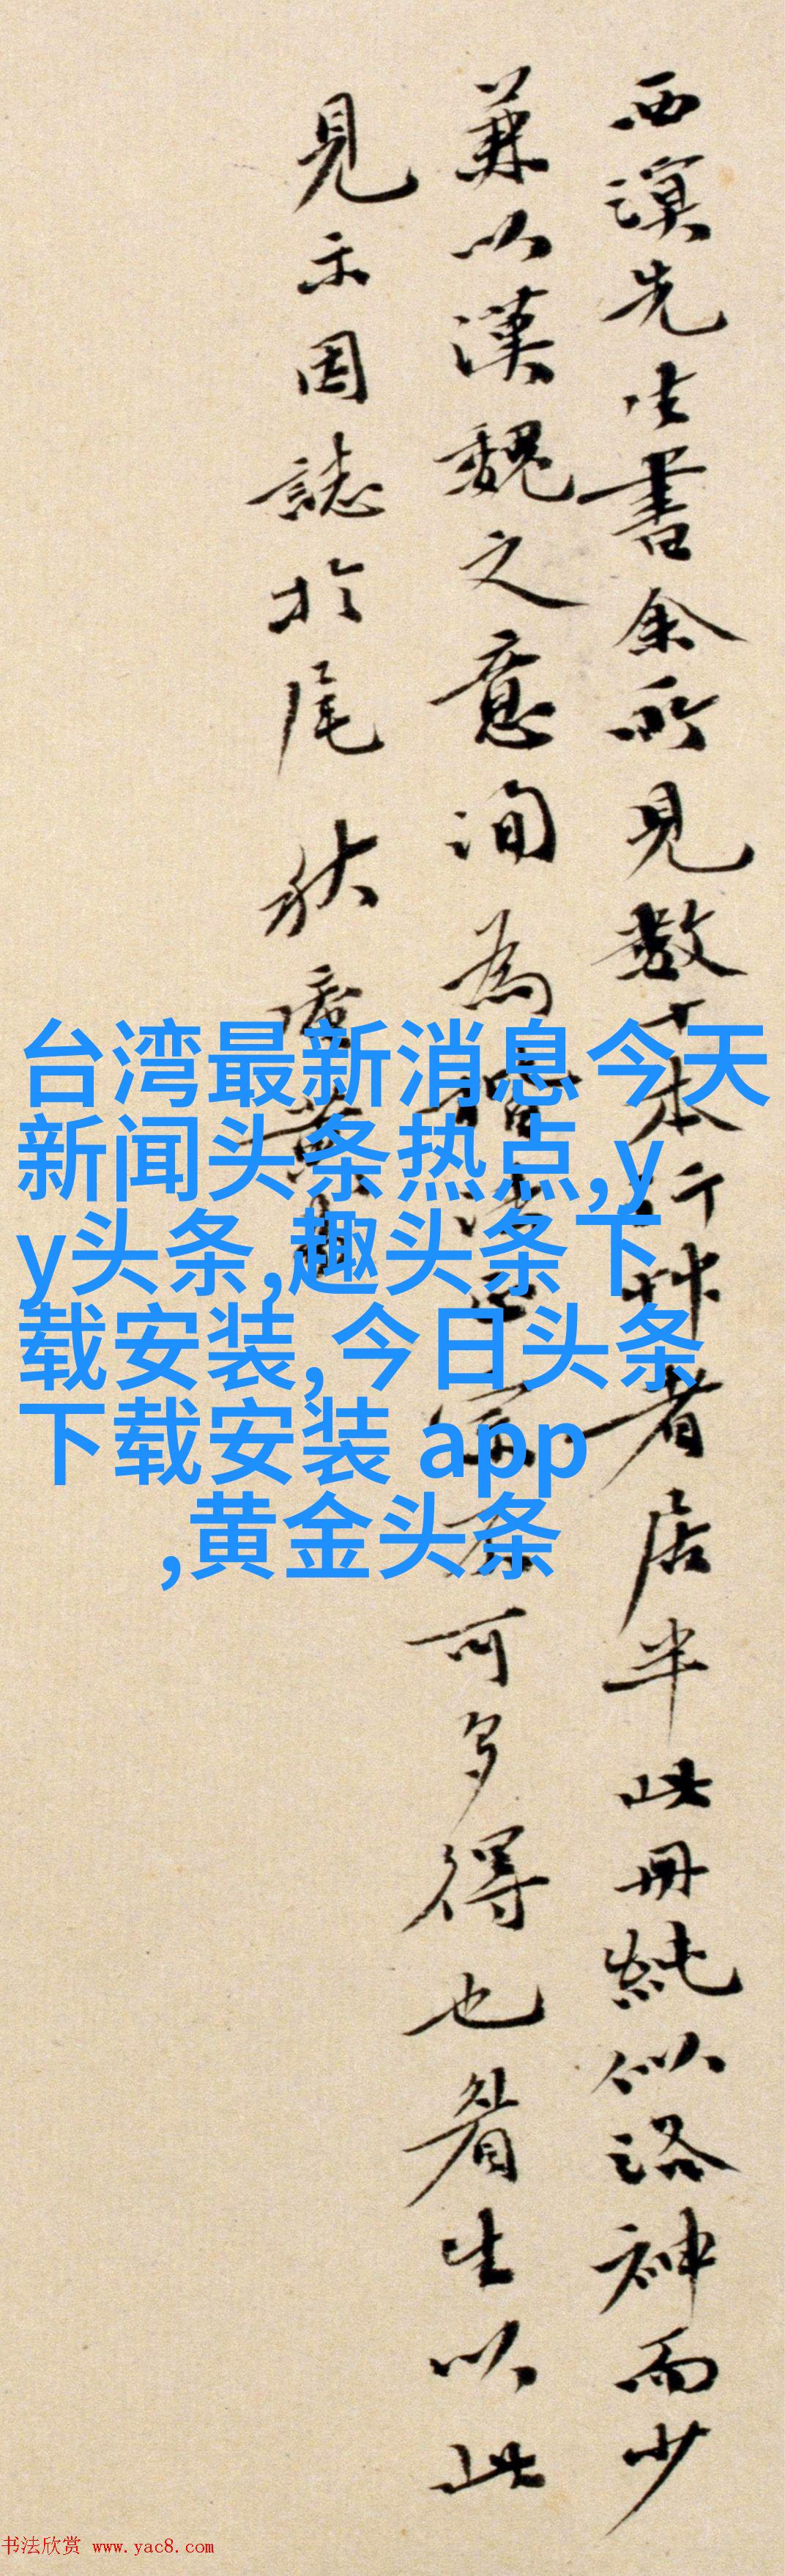 西溟先生書余所見数十本行艸者居半此冊純似洛神而少
兼以漢魏之意洵為 可多得也眉生以此
見示因誌於尾 秋
台湾最新消息今天
新闻头条热点,y
y头条,趣头条下
载安装,今日头条
下载安装 app
,黄金头条
书法欣赏 www.yac8.com